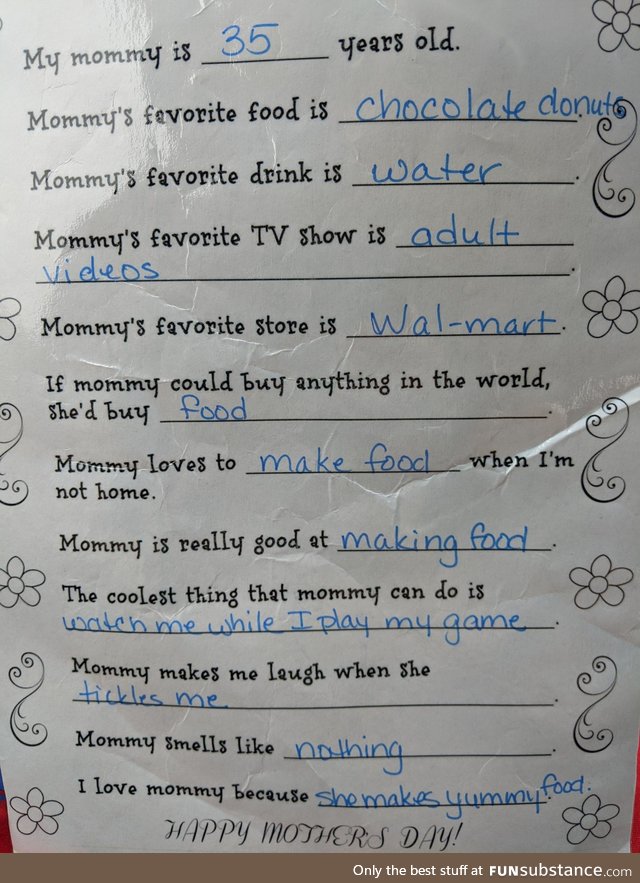 My mommy is 35 years old.
Mommy's favorite food is chocolate donuts.
Mommy's favorite drink is water.
Mommy's favorite TV show is adult
videos.
Mommy's favorite store is Wal-mart.
If mommy could buy anything in the world,
she'd buy food.
Mommy loves to make food when I'm
not home.
Mommy is really good at making food.
The coolest thing that mommy can do is
watch me while I play my game.
Mommy makes me laugh when she
tickles me.
Mommy smells like nothing.
I love mommy because she makes yummy food.
HAPPY MOTHERS DAY!
Only the best stuff at FUNsubstance.com